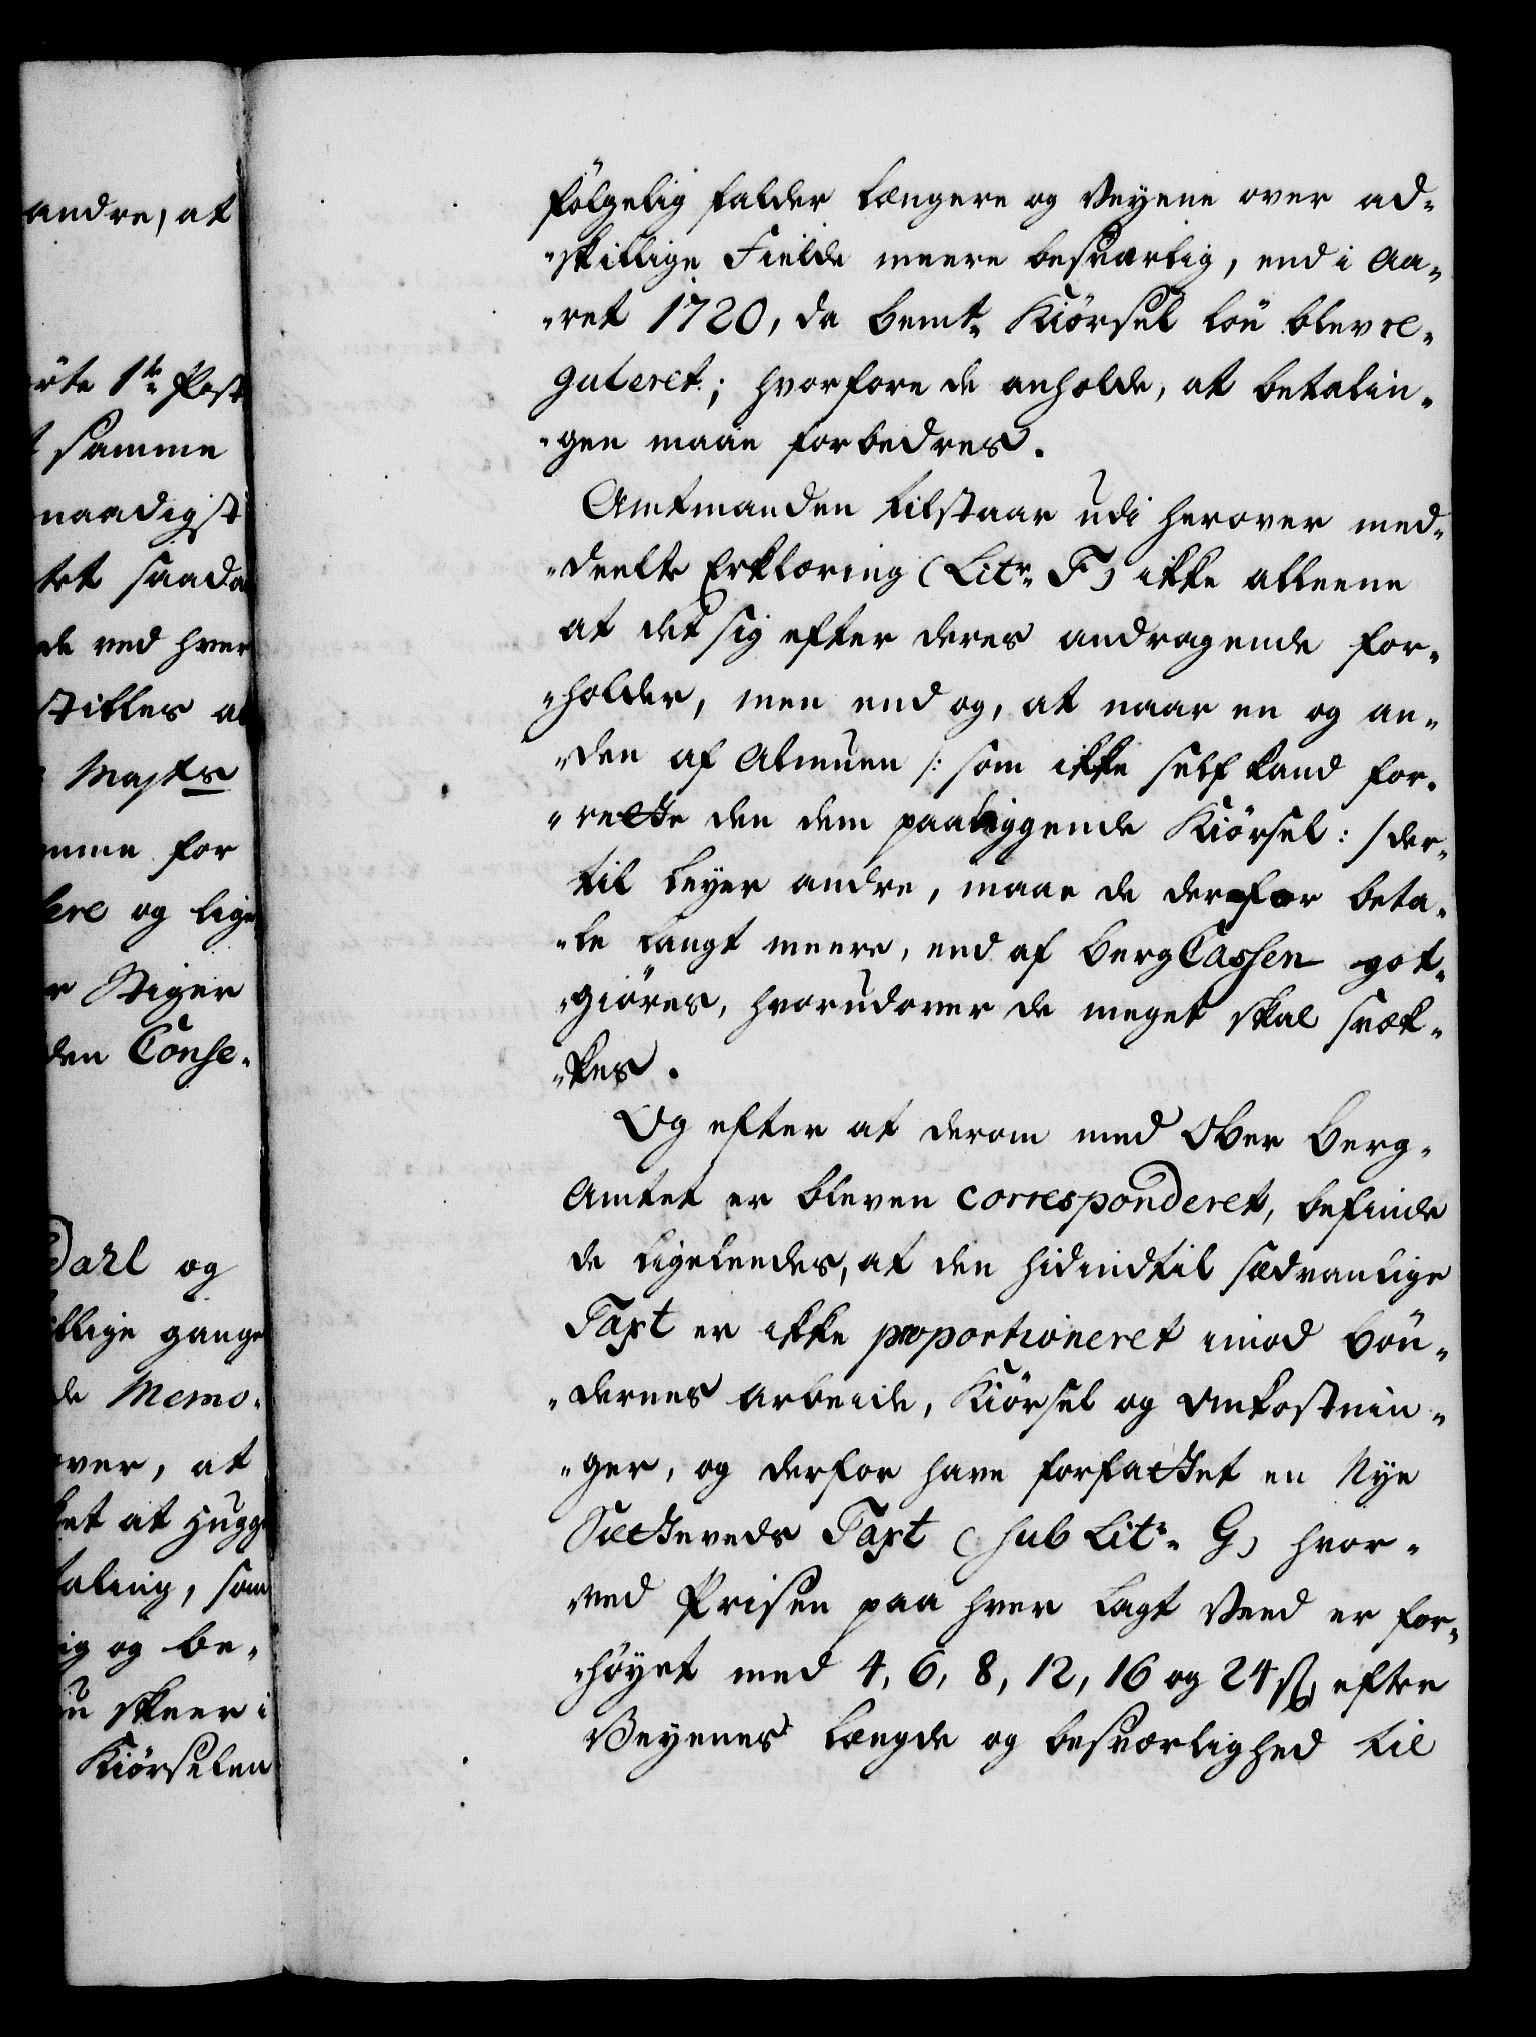 andre, at
1te Post
samme
naadigst
tet saada
de ved hver
Maj:ts
for
og lige
Stiger
den Conse-
Dahl og
gange
de Memo-
over, at
at Hugge
taling, som
og be-
skeer i
Kiørselen
følgelig falder længere og Veyene over ad-
-skillige Fielde meere besværlig, end i Aa-
-ret 1720, da bemte Kiørsel Løn blev re-
guleret; hvorfore de anholde, at betalin-
-gen maae forbedres.
Amtmanden tilstaar udi herover med-
-deelte Erklæring (Litr. F) ikke alleene
at det sig efter deres andragende for-
-holder, men end og, at naar en og an-
-den af Almuen /: som ikke self kand for-
-rette den dem paaliggende Kiørsel :/ der-
til Leyer andre, maae de derfor beta-
-le langt meere, end af BergCassen got-
-giøres, hvorudover de meget skal svæk-
-kes.
Og efter at derom med Ober Berg-
Amtet er bleven corresponderet, befinde
de ligeleedes, at den hidindtil sædvanlige
Taxt er ikke proportioneret imod Bøn-
-dernes arbeide, Kiørsel og Omkostnin-
-ger, og derfor have forfattet en Nye
Sætteveds Taxt (sub Litr. G) hvor-
-ved Prisen paa hver Lagt Veed er for-
-høyet med 4, 6, 8, 12, 16 og 24 ß, efter
Veyenes Længde og besværlighed til